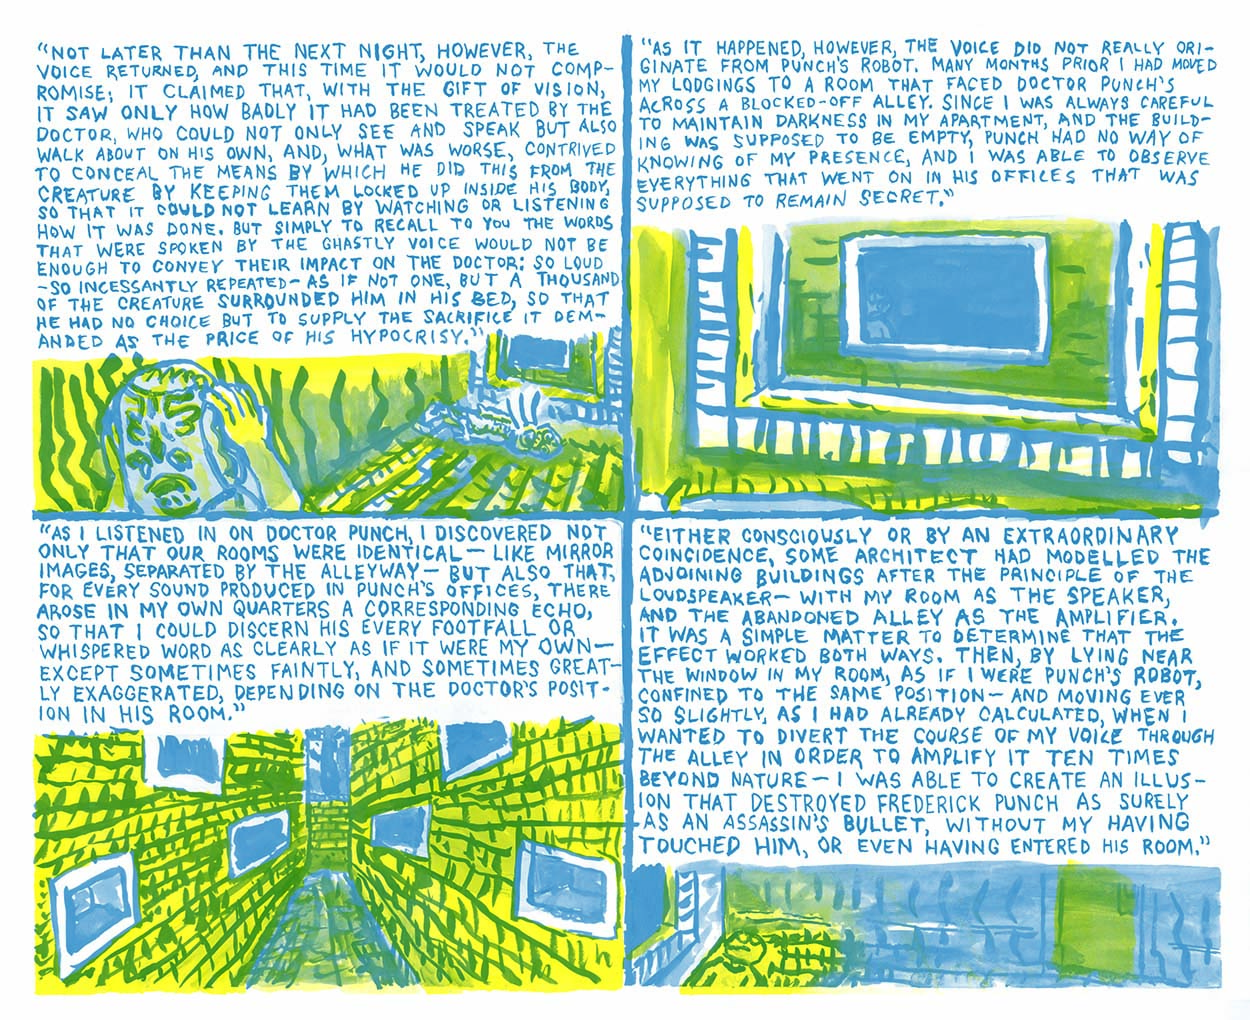 "NOT LATER THAN THE NEXT NIGHT, HOWEVER, THE
VOICE RETURNED, AND THIS TIME IT WOULD NOT COMP-
ROMISE; IT CLAIMED THAT, WITH THE GIFT OF VISION,
IT SAW ONLY HOW BADLY IT HAD BEEN TREATED BY THE
DOCTOR, WHO COULD NOT ONLY SEE AND SPEAK BUT ALSO
WALK ABOUT ON HIS OWN, AND, WHAT WAS WORSE, CONTRIVED
TO CONCEAL THE MEANS BY WHICH HE DID THIS FROM THE
CREATURE BY KEEPING THEM LOCKED UP INSIDE HIS BODY,
SO THAT IT COULD NOT LEARN BY WATCHING OR LISTENING
HOW IT WAS DONE. BUT SIMPLY TO RECALL TO YOU THE WORDS
THAT WERE SPOKEN BY THE GHASTLY VOICE WOULD NOT BE
ENOUGH TO CONVEY THEIR IMPACT ON THE DOCTOR: SO LOUD
-SO INCESSANTLY REPEATED- AS IF NOT ONE, BUT A THOUSAND
OF THE CREATURE SURROUNDED HIM IN HIS BED, SO THAT
HE HAD NO CHOICE BUT TO SUPPLY THE SACRIFICE IT DEM-
ANDED AS THE PRICE OF HIS HYPOCRISY."
"AS IT HAPPENED, HOWEVER, THE VOICE DID NOT REALLY ORI-
GINATE FROM PUNCH'S ROBOT. MANY MONTHS PRIOR I HAD MOVED
MY LODGINGS TO A ROOM THAT FACED DOCTOR PUNCH'S
ACROSS A BLOCKED-OFF ALLEY. SINCE I WAS ALWAYS CAREFUL
TO MAINTAIN DARKNESS IN MY APARTMENT, AND THE BUILD-
ING WAS SUPPOSED TO BE EMPTY, PUNCH HAD NO WAY OF
KNOWING OF MY PRESENCE, AND I WAS ABLE TO OBSERVE
EVERYTHING THAT WENT ON IN HIS OFFICES THAT WAS
SUPPOSED TO REMAIN SECRET."
"AS I LISTENED IN ON DOCTOR PUNCH, I DISCOVERED NOT
ONLY THAT OUR ROOMS WERE IDENTICAL— LIKE MIRROR
IMAGES, SEPARATED BY THE ALLEYWAY— BUT ALSO THAT,
FOR EVERY SOUND PRODUCED IN PUNCH'S OFFICES, THERE
AROSE IN MY OWN QUARTERS A CORRESPONDING ECHO,
SO THAT I COULD DISCERN HIS EVERY FOOTFALL OR
WHISPERED WORD AS CLEARLY AS IF IT WERE MY OWN—
EXCEPT SOMETIMES FAINTLY, AND SOMETIMES GREAT-
LY EXAGGERATED, DEPENDING ON THE DOCTOR'S POSIT-
ION IN HIS ROOM."
"EITHER CONSCIOUSLY OR BY AN EXTRAORDINARY
COINCIDENCE, SOME ARCHITECT HAD MODELLED THE
ADJOINING BUILDINGS AFTER THE PRINCIPLE OF THE
LOUDSPEAKER— WITH MY ROOM AS THE SPEAKER,
AND THE ABANDONED ALLEY AS THE AMPLIFIER.
IT WAS A SIMPLE MATTER TO DETERMINE THAT THE
EFFECT WORKED BOTH WAYS. THEN, BY LYING NEAR
THE WINDOW IN MY ROOM, AS IF I WERE PUNCH'S ROBOT,
CONFINED TO THE SAME POSITION— AND MOVING EVER
SO SLIGHTLY, AS I HAD ALREADY CALCULATED, WHEN I
WANTED TO DIVERT THE COURSE OF MY VOICE THROUGH
THE ALLEY IN ORDER TO AMPLIFY IT TEN TIMES
BEYOND NATURE— I WAS ABLE TO CREATE AN ILLUS-
ION THAT DESTROYED FREDERICK PUNCH AS SURELY
AS AN ASSASSIN'S BULLET, WITHOUT MY HAVING
TOUCHED HIM, OR EVEN HAVING ENTERED HIS ROOM."